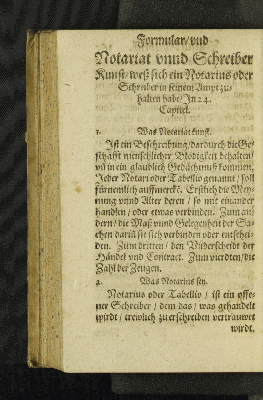 Formular/vnd
Notariat vnnd Schreiber
Kunst/weß sich ein Notarius oder
Schreiber in seinem Ampt zu-
halten habe/In 24.
Capitel.
1. Was Notariat kunst.
Ist ein Beschreibung/dardurch die Ge-
schäfft menschlicher Blödigkeit behalten/
vñ in ein glaublich Gedächtnuß kommen.
Jeder Notari oder Tabellio genannt/soll
fürnemlich auffmercke. Erstlich die Mey-
nung vnnd Alter deren/so mit einander
handlen/oder etwas verbinden. Zum an-
dern/die Maß vnnd Gelegenheit der Sa-
chen dariñ sie sich verbinden oder entschei-
den. Zum dritten/den Vnderscheidt der
Händel vnd Contract. Zum vierdten/die
Zahl der Zeugen.
2. Was Notarius sey.
Notarius oder Tabellio/ist ein offe-
ner Schreiber/dem das/was gehandelt
wirdt/trewlich zu erschreiben vertrauwet
wirdt.